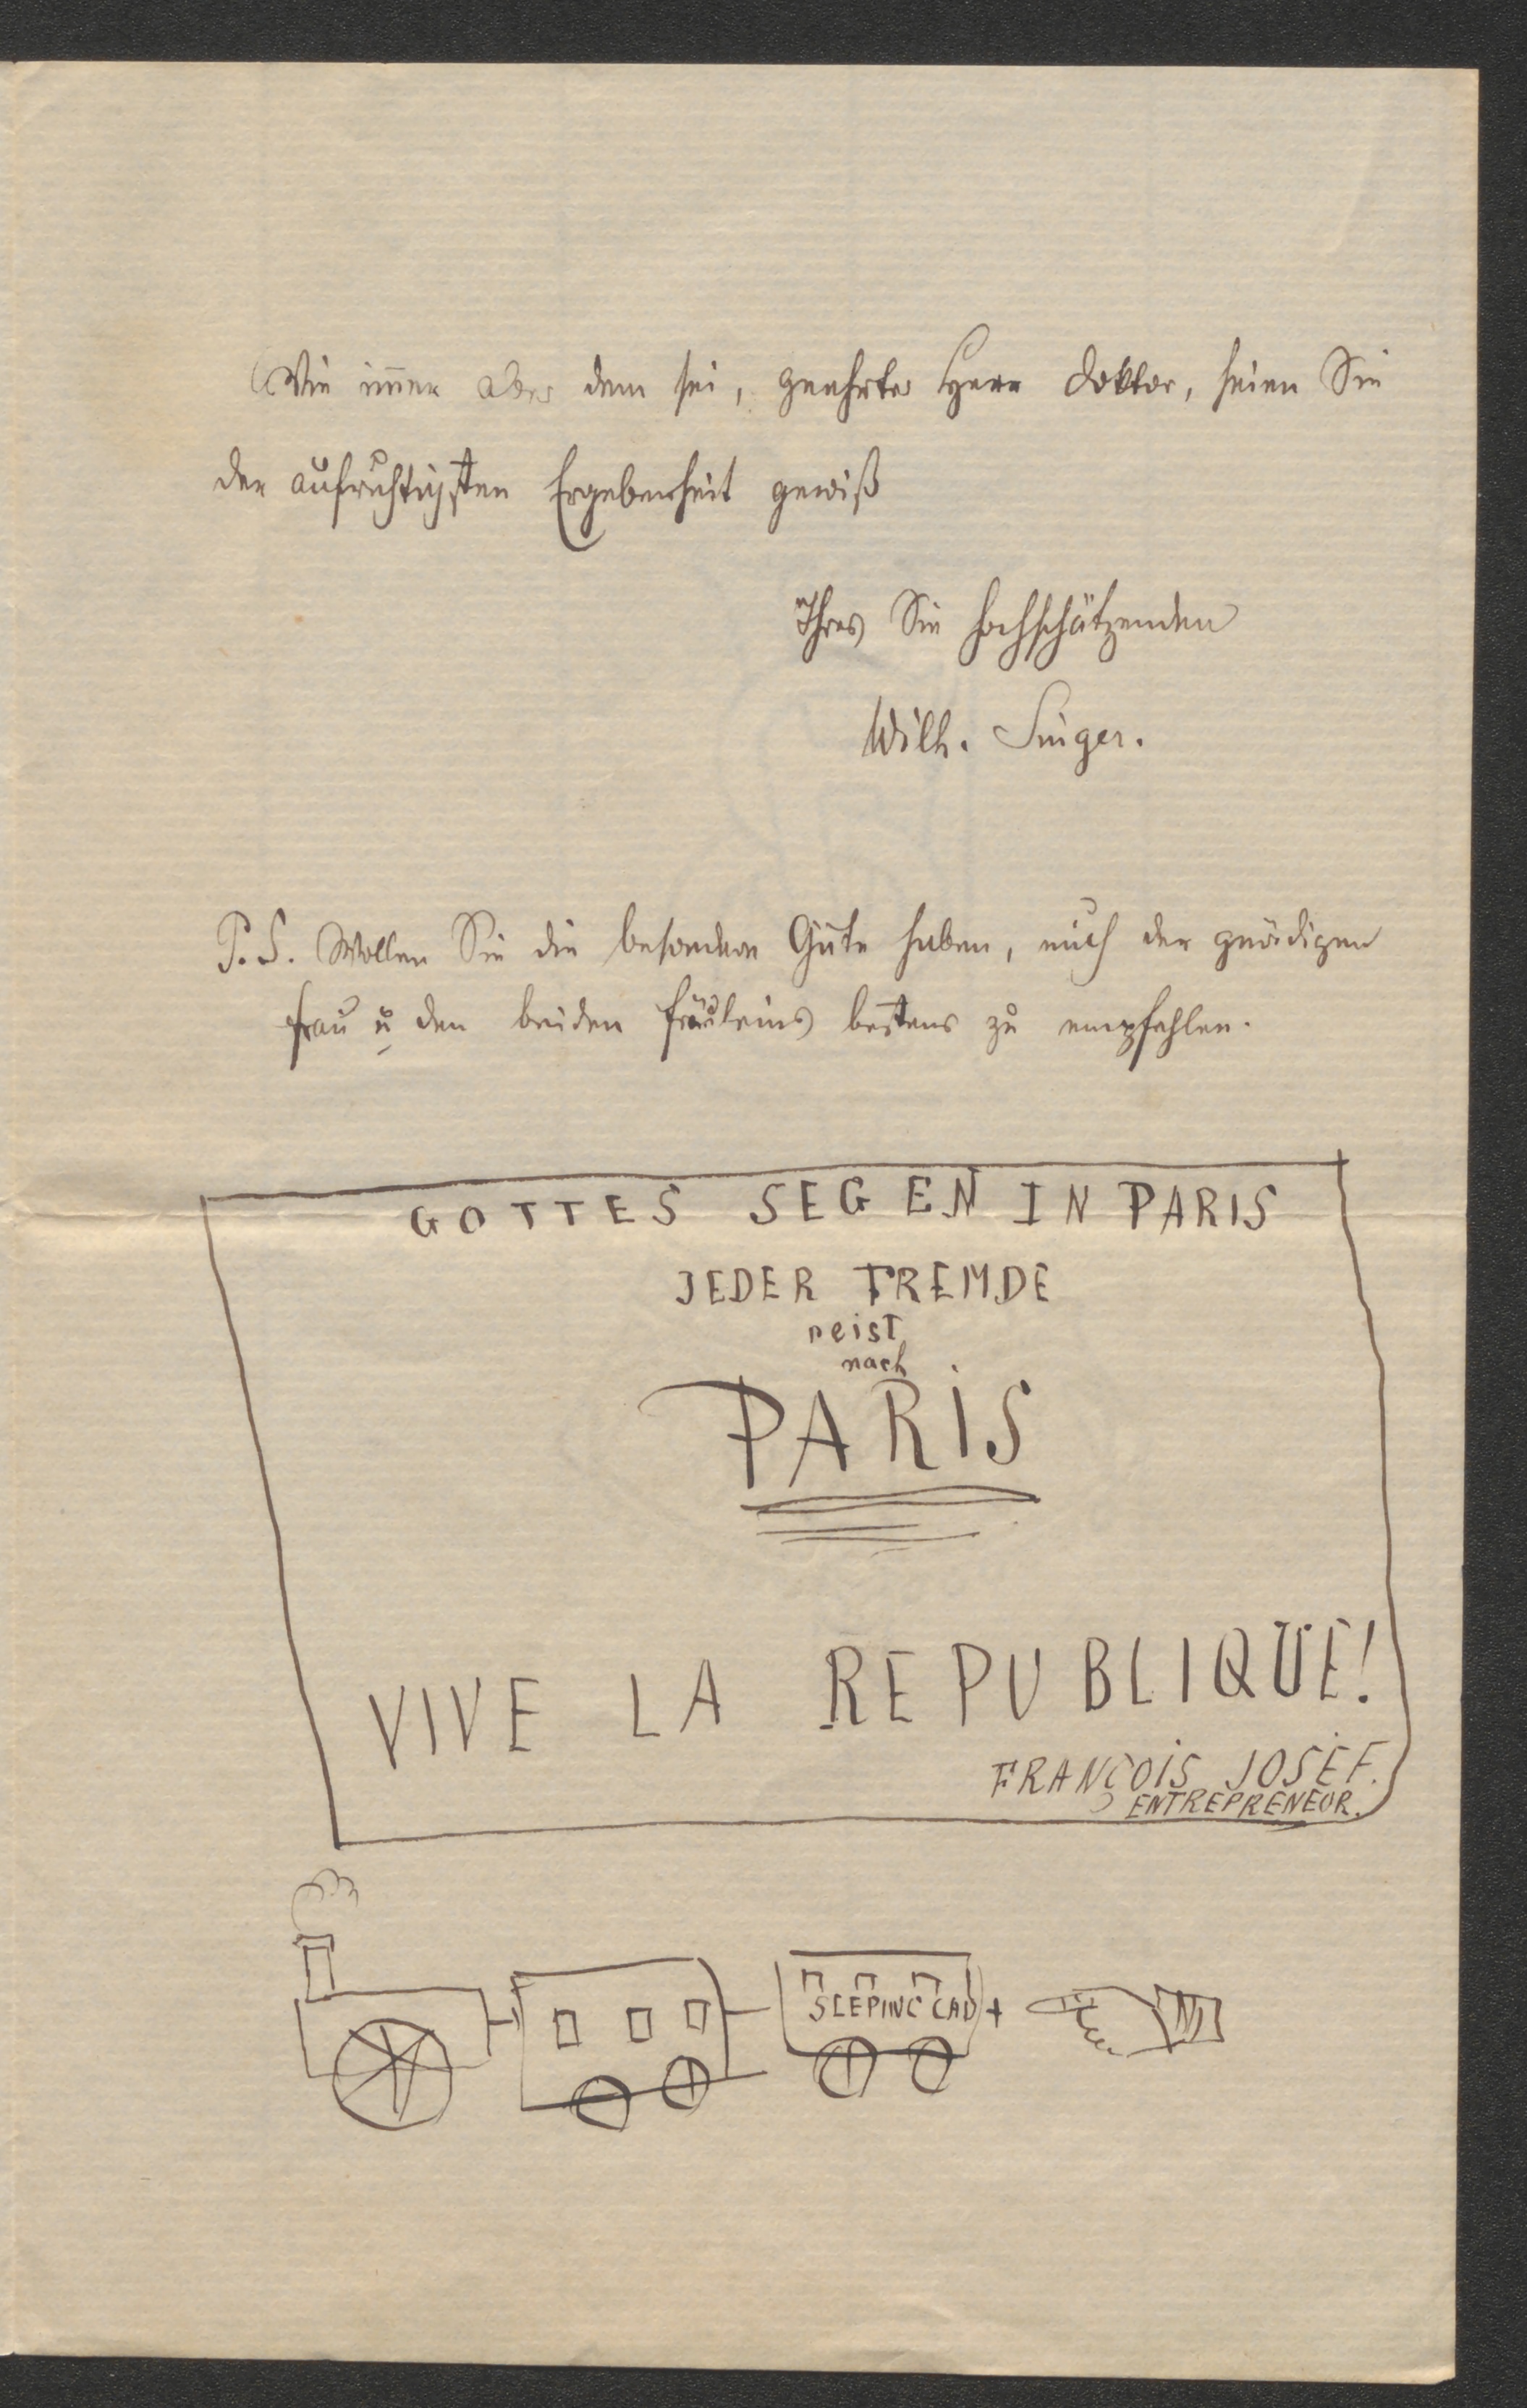 Wie immer aber dem sei, geehrter Herr Doktor, seien Sie
der aufrichtigsten Ergebenheit gewiß
Ihres Sie hochschätzenden
Wilh. Singer.
P.S. Wollen Sie die besondere Güte haben, mich der gnädigen
Frau u den beiden Fräuleins bestens zu empfehlen.
GOTTES SEGEN IN PARIS
JEDER FREMDE
reist
nach
PARiS
VIVE LA REPUBLIQUE!
FRANÇOiS JOSEF.
ENTREPRENEUR.
SLEPING CAD